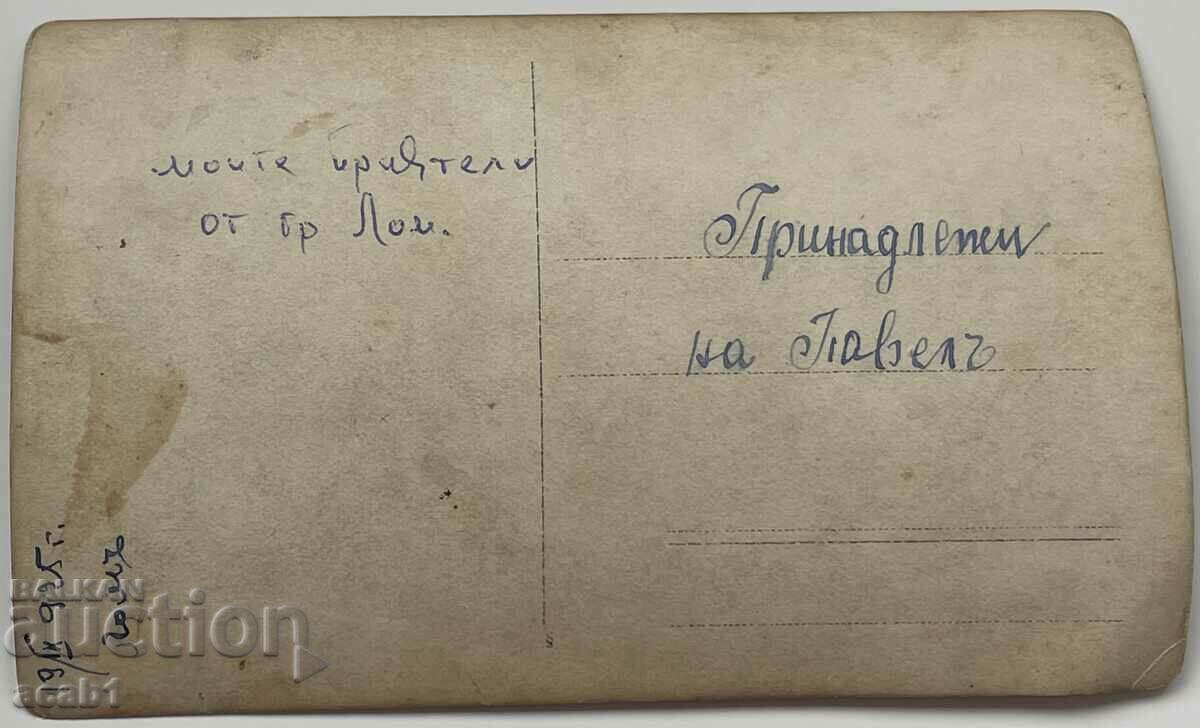 моите приятели
от гр Лом.
Принадлежи
на Павелъ
925 г.
BALKAN
auction
acab1
S